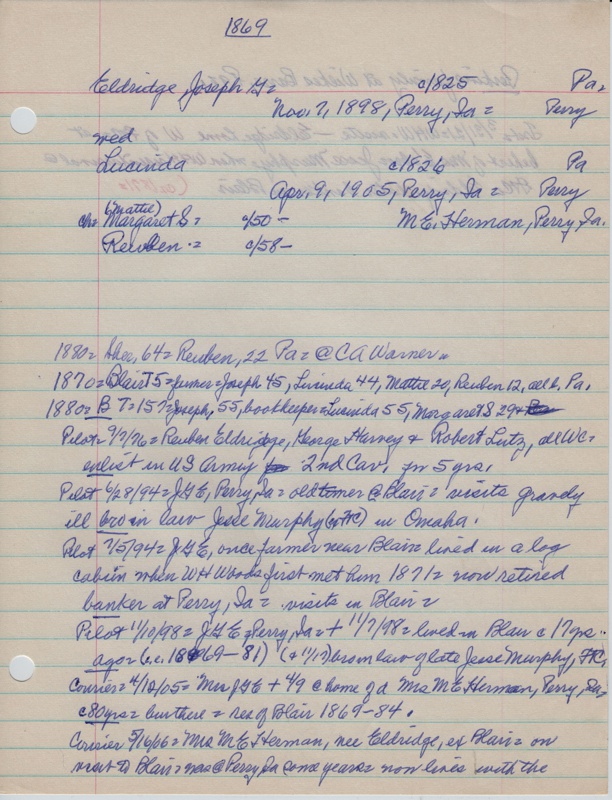 1869
Eldridge, Joseph G= c1825 Pa=
Nov. 7, 1898, Perry, Ia = Perry
wed
Lucinda c1826 Pa
Apr. 9, 1905, Perry, Ia = Perry
(Mattie)
ch= Margaret S= c/50- M.E. Herman, Perry, Ia.
Reuben = c/58-
1880= 64= Reuben, 22 Pa= @ CA Warner =
1870= Blair T5= farmer= Joseph 45, Lucinda 44, Mattie 20, Reuben 12, all b. Pa.
1880= B T=157= Joseph, 55, bookkeeper= Lucinda 55, Margaret S 29=
Pilot= 9/7/76= Reuben Eldridge, George Harvey & Robert Lutz, all WC=
enlist in US Army 2nd Cav. for 5 yrs.
Pilot 6/28/94= JGE, Perry, Ia= oldtimer @ Blair= visits gravely
ill bro in law Jesse Murphy (of FC) in Omaha.
Pilot 7/5/94= JGE, once farmer near Blair= lived in a log
cabin when WH Woods first met him 1871= now retired
banker at Perry, Ia = visits in Blair=
Pilot 11/10/98= JGE= Perry, Ia= + 11/7/98= lived in Blair c 17 yrs
ago= (i.e. 1869-81) (+ 11/17) bro in law of late Jesse Murphy, FC,
Courier= 4/12/05= Mrs JGE + 4/9 @ home of d Mrs M E Herman, Perry, Ia,
c80 yrs= bur there = res of Blair 1869-84.
Courier 5/16/06= Mrs M E Herman, nee Eldridge, ex Blair= on
visit to Blair= was @ Perry, Ia some years= now lives with the